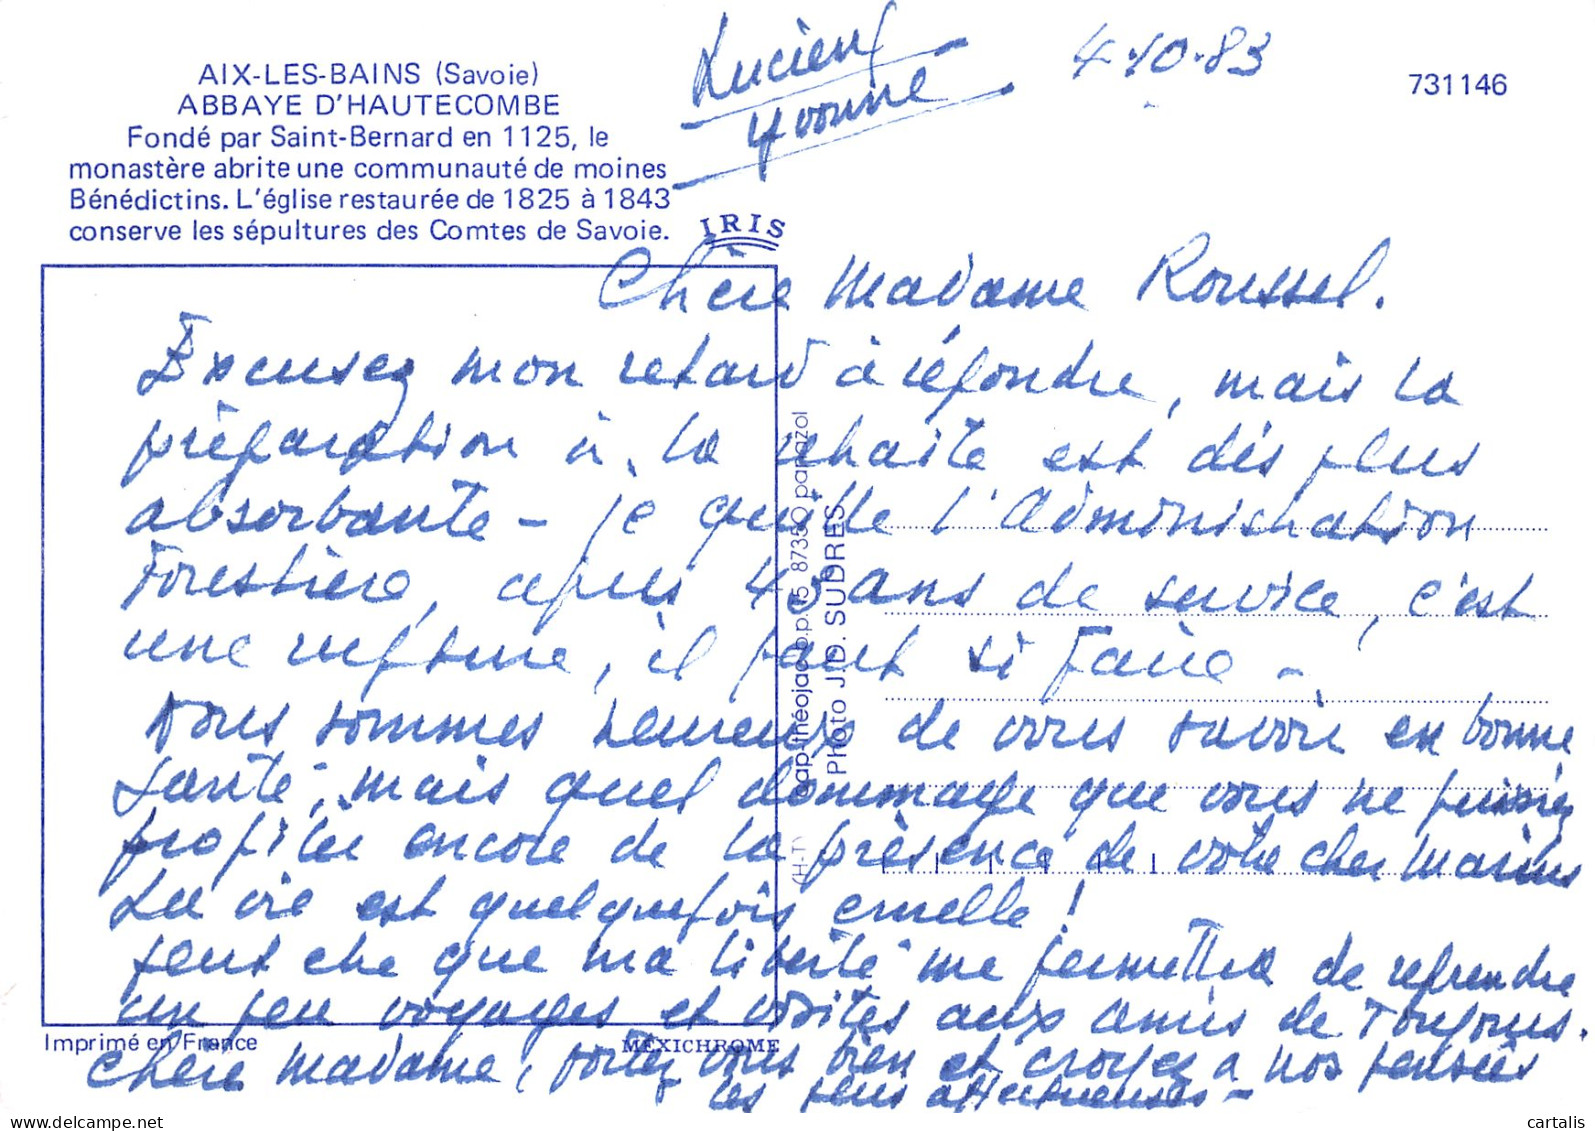 AIX-LES-BAINS (Savoie)
ABBAYE D'HAUTECOMBE
Fondé par Saint-Bernard en 1125, le
monastère abrite une communauté de moines
Bénédictins. L'église restaurée de 1825 à 1843
conserve les sépultures des Comtes de Savoie.
Lucien
Yvonne
4-10-83
731146
IRIS
Chère Madame Roussel.
Excusez mon retard à répondre, mais la
préparation à la retraite est dès plus
absorbante - je quitte l'Administration
Forestière, après 43 ans de service, c'est
une rupture, il faut si faire -
Nous sommes heureux de vous savoir en bonne
santé, mais quel dommage que vous ne puissiez
profiter encore de la présence de votre cher Marius
La vie est quelquefois cruelle !
peut être que ma liberté me permettra de reprendre
un peu voyages et visites aux amis de Toujours.
Chère Madame, portez vous bien et croyez à nos pensées
les plus affectueuses -
cap-théojac 87350 panazol
Photo J.D. SUDRES
(H-T)
Imprimé en France
MEXICHROME
cartalis